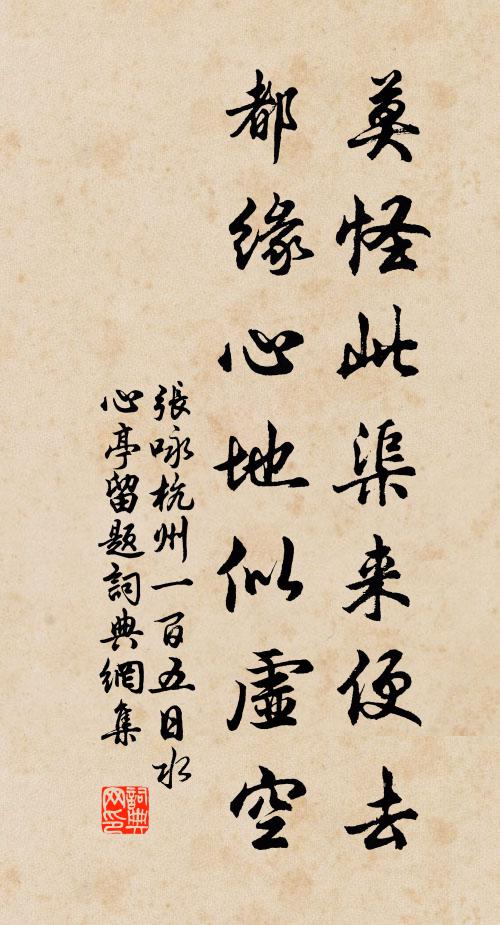 莫怪此渠来便去
都緣心地似虛空
張咏杭州一百五日水
心亭留题詞典網集
詞典
网印